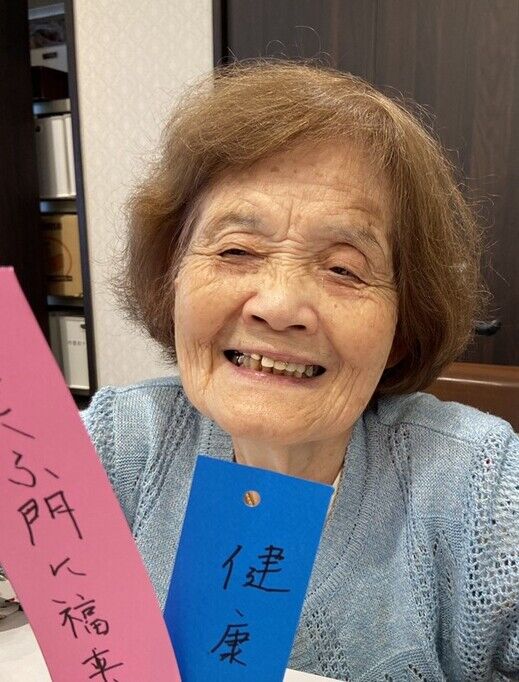 笑ふ門に福来
健康